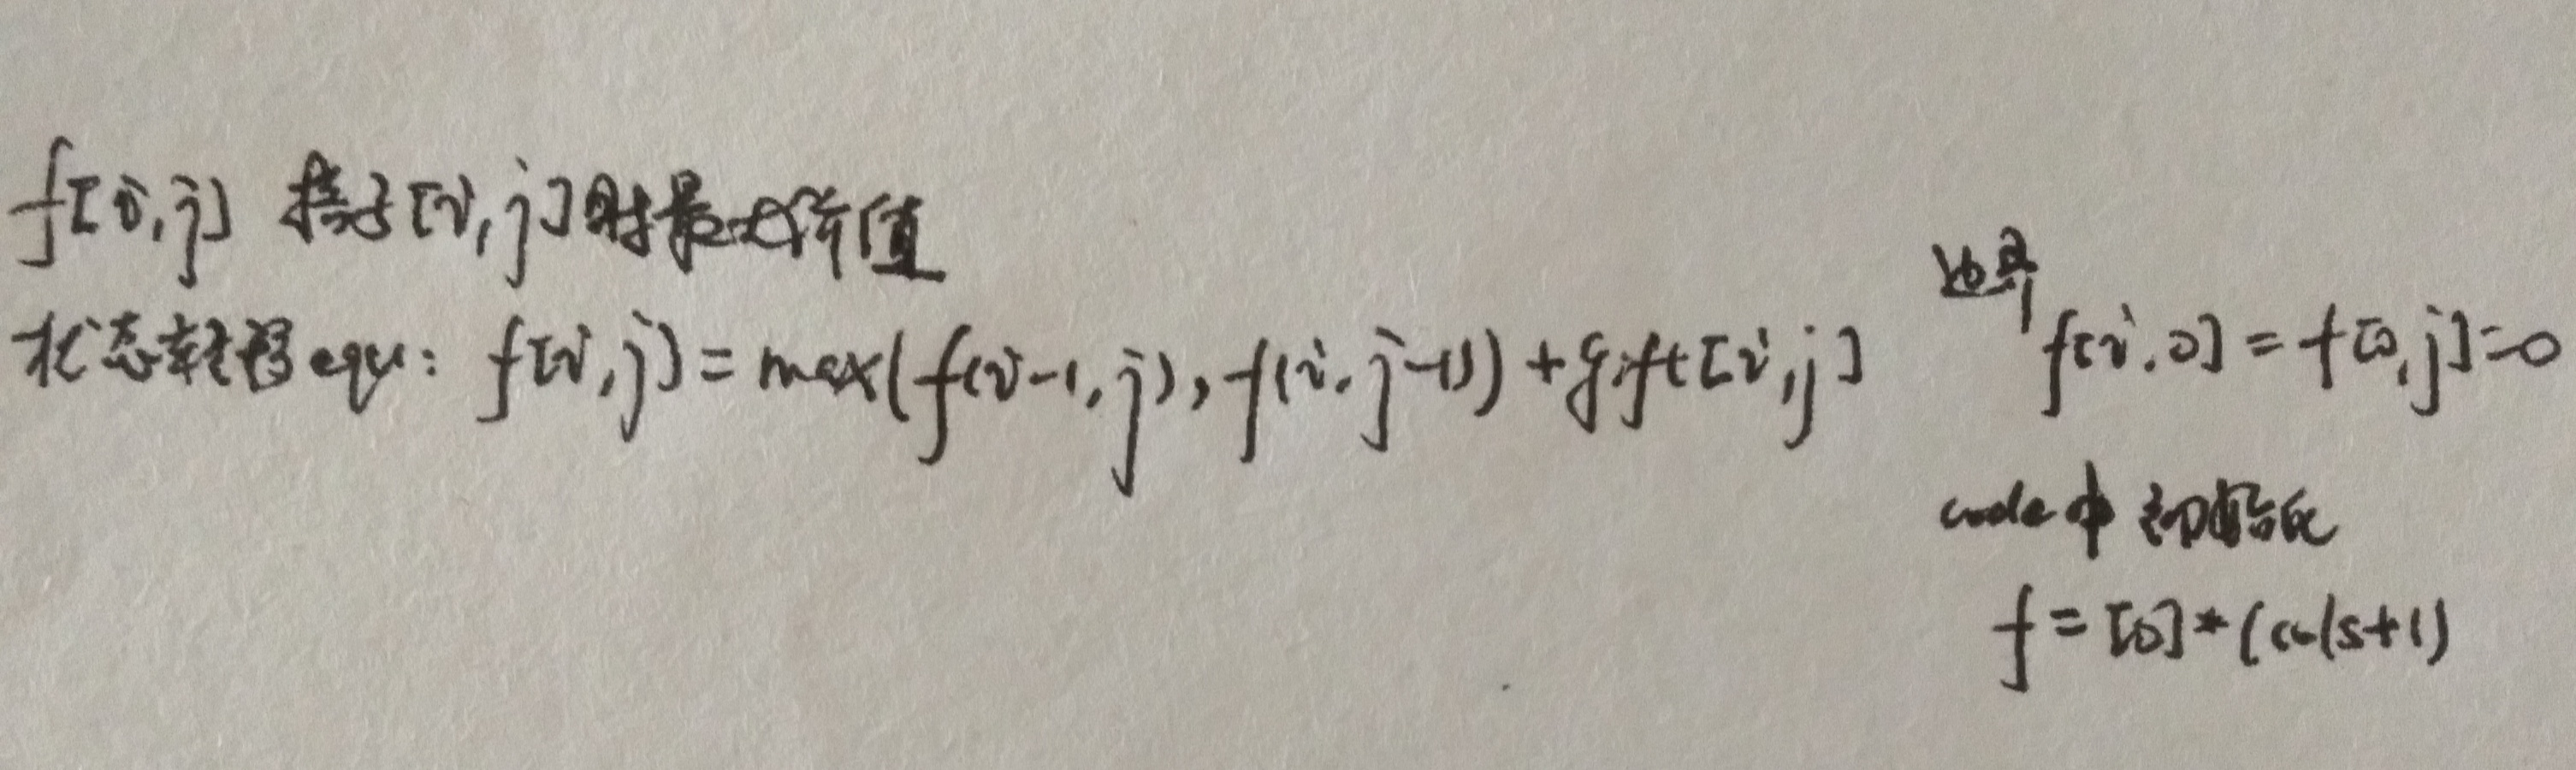 f[i,j] 格子[i,j]时最大价值
状态转移equ: f[i,j] = max(f(i-1,j), f(i,j-1)) + gift[i,j]
边界
f[i,0] = f[0,j] = 0
code中初始化
f = [0]*(cols+1)